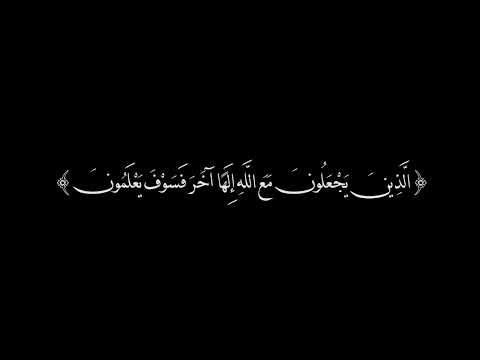 ﴿ الَّذِينَ يَجْعَلُونَ مَعَ اللَّهِ إِلَهًا آخَرَ فَسَوْفَ يَعْلَمُونَ ﴾